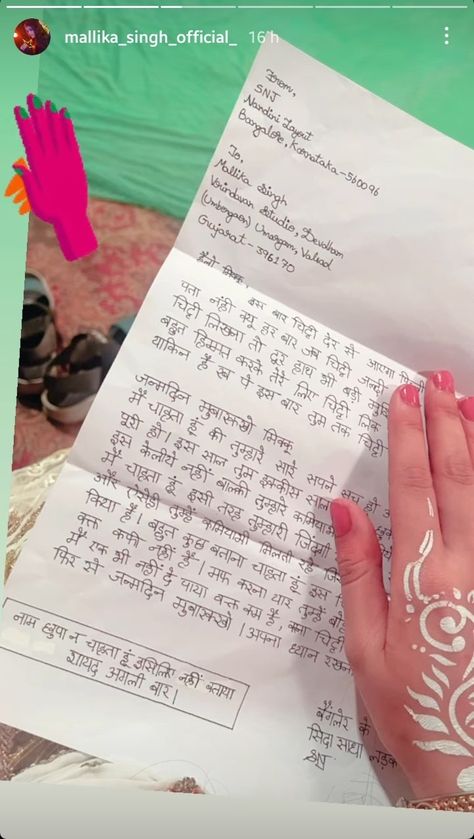 mallika_singh_official_ 16h
From,
SNJ
Nandini Layout
Bangalore, Karnataka-560096
To,
Mallika Singh
Vrindavan Studio, Devdham
(Umbergaon) Umargam, Valsad
Gujarat - 396170
हैलो मिक्कू,
पता नंही क्यू हर बार इस बार चिट्ठी देर से आएगा
चिट्ठी लिखना तो दूर हाथ भी बड़ी
बहुत हिम्मत करके तेरे लिए चिट्ठी लिख
याकिन है रब पे इस बार तुम तक चिट्ठी
जन्मदिन मुबारखहो मिक्कू
में चाहता हूं की तुम्हारे सारे सपने सच हो
पूरी हो। इस साल तुम इक्कीस साल
इस केलीये नहीं बाल्की तुम्हारे कामियाबी
में चाहता हूं इसी तरह तुम्हारी जिंदगी
और तुम्हे कामियाबी मिलती रहे
किया है। बहुत कुछ बताना चाहता हूं इस
वक्त काफी नहीं है। माफ करना यार तुम्हें
में एक भी नहीं दे पाया वक्त कम है चिट्ठी
फिर से जन्मदिन मुबारखहो। अपना ध्यान रखना
नाम छुपा न चाहता हूं इसिलिए नहीं बताया
शायद अगली बार।
बैंगलोर के
सिदा साधा लड़क
SNJ